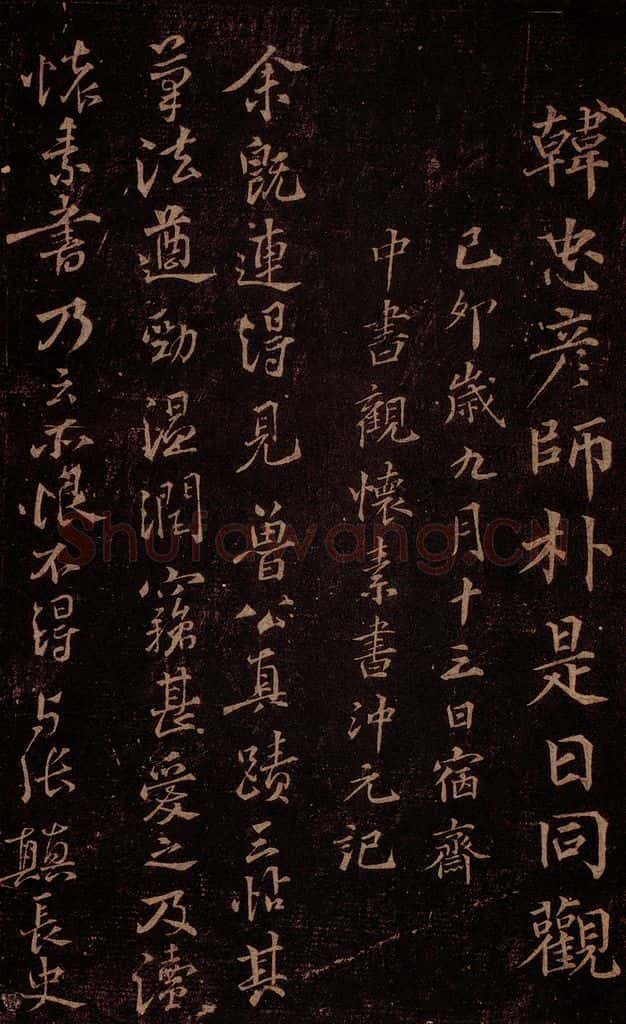 韓忠彥師朴是日同觀
己卯歲九月十三日宿齋
中書觀懷素書沖元記
余既連得見曽公真蹟三帖其
草法遒勁温潤竊甚愛之及讀
懐素書乃云亦恨不得与張顛長史
Shufawang.CN